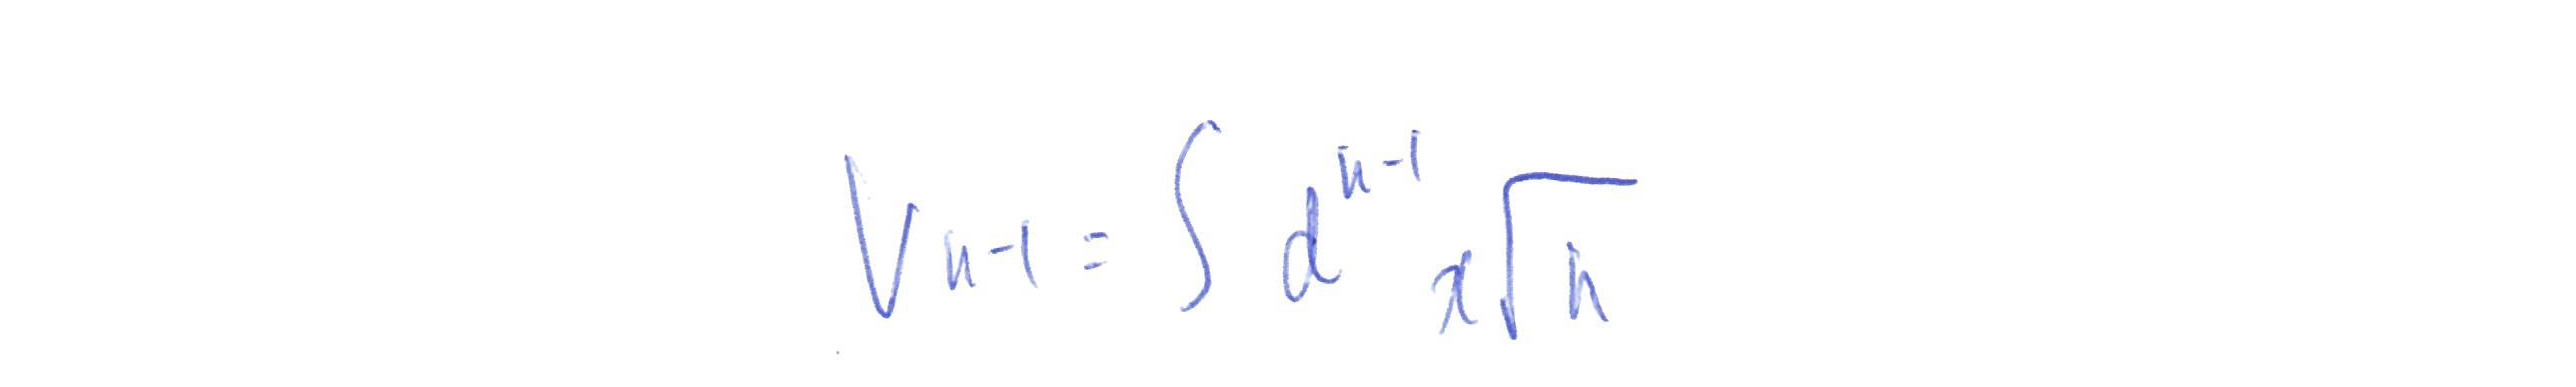 V_{n-1} = \int d^{n-1} x \sqrt{h}